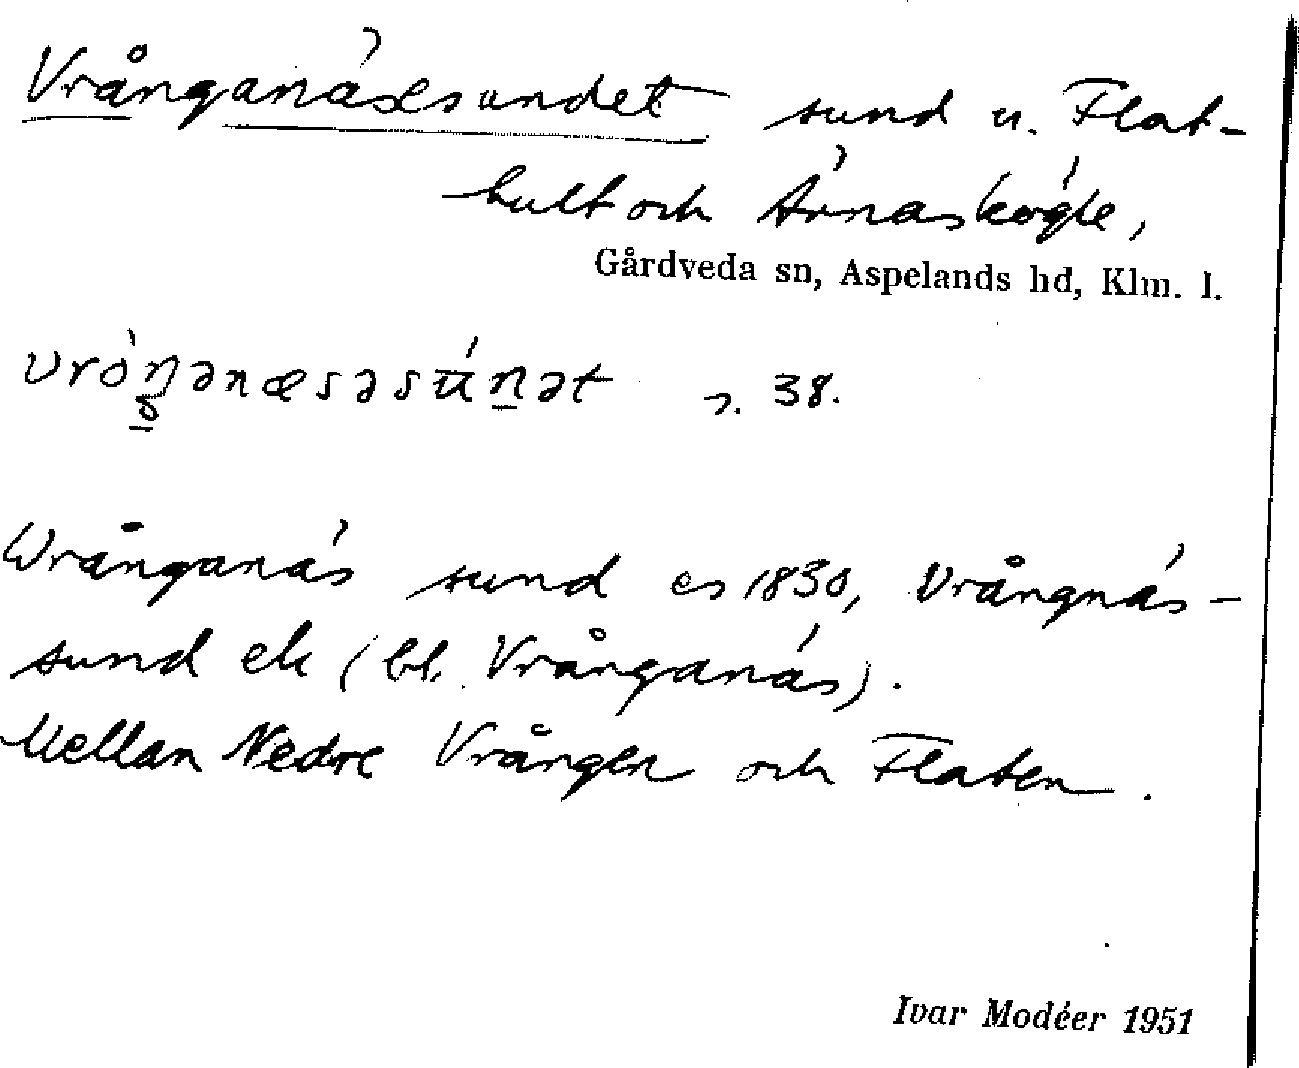 Vrånganäsesundet sund u. Flat-
hult och Ärnaskögle,
Gårdveda sn, Aspelands hd, Klm. l.
s. 38.
Wrånganäs sund es 1830, Vrångnäs-
sund ek (bl. Vrånganäs).
Mellan Nedre Vrången och Flaten.
Ivar Modéer 1951